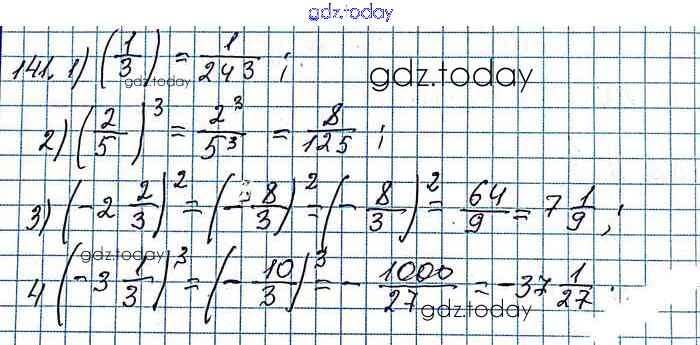 gdz.today
141. 1) (1/3) = 1/243 ;
gdz.today
gdz.today
2) (2/5)³ = 2³/5³ = 8/125 ;
3) (-2 2/3)² = (-8/3)² = (-8/3)² = 64/9 = 7 1/9 ;
gdz.today
4 (-3 1/3)³ = (-10/3)³ = - 1000/27 = -37 1/27 .
gdz.today